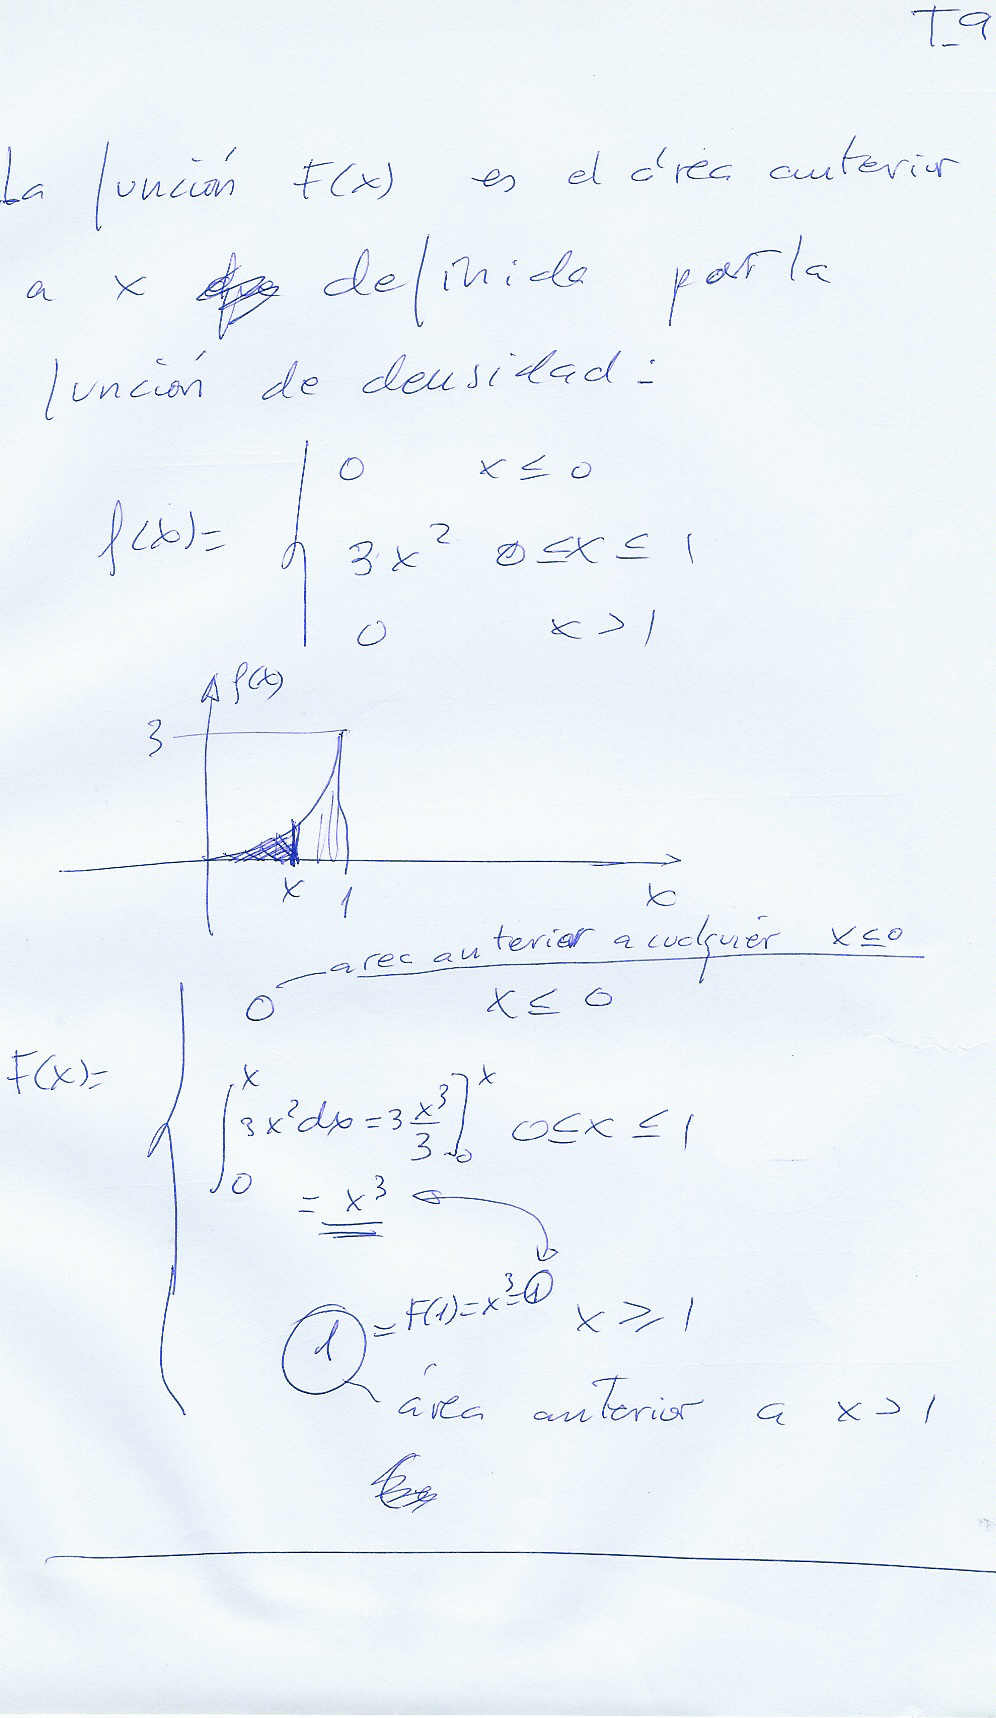 T_9
La función F(x) es el área anterior
a x definida por la
función de densidad:
f(x)= { 0 x ≤ 0
3x² 0 ≤ x ≤ 1
0 x > 1
f(x)
3
x 1 x
area anterior a cualquier x≤0
0 x ≤ 0
F(x)= { ∫₀ˣ 3x²dx = 3 x³/3 ]₀ˣ 0 ≤ x ≤ 1
= x³
1 = F(1) = x³ = 1 x ≥ 1
área anterior a x > 1